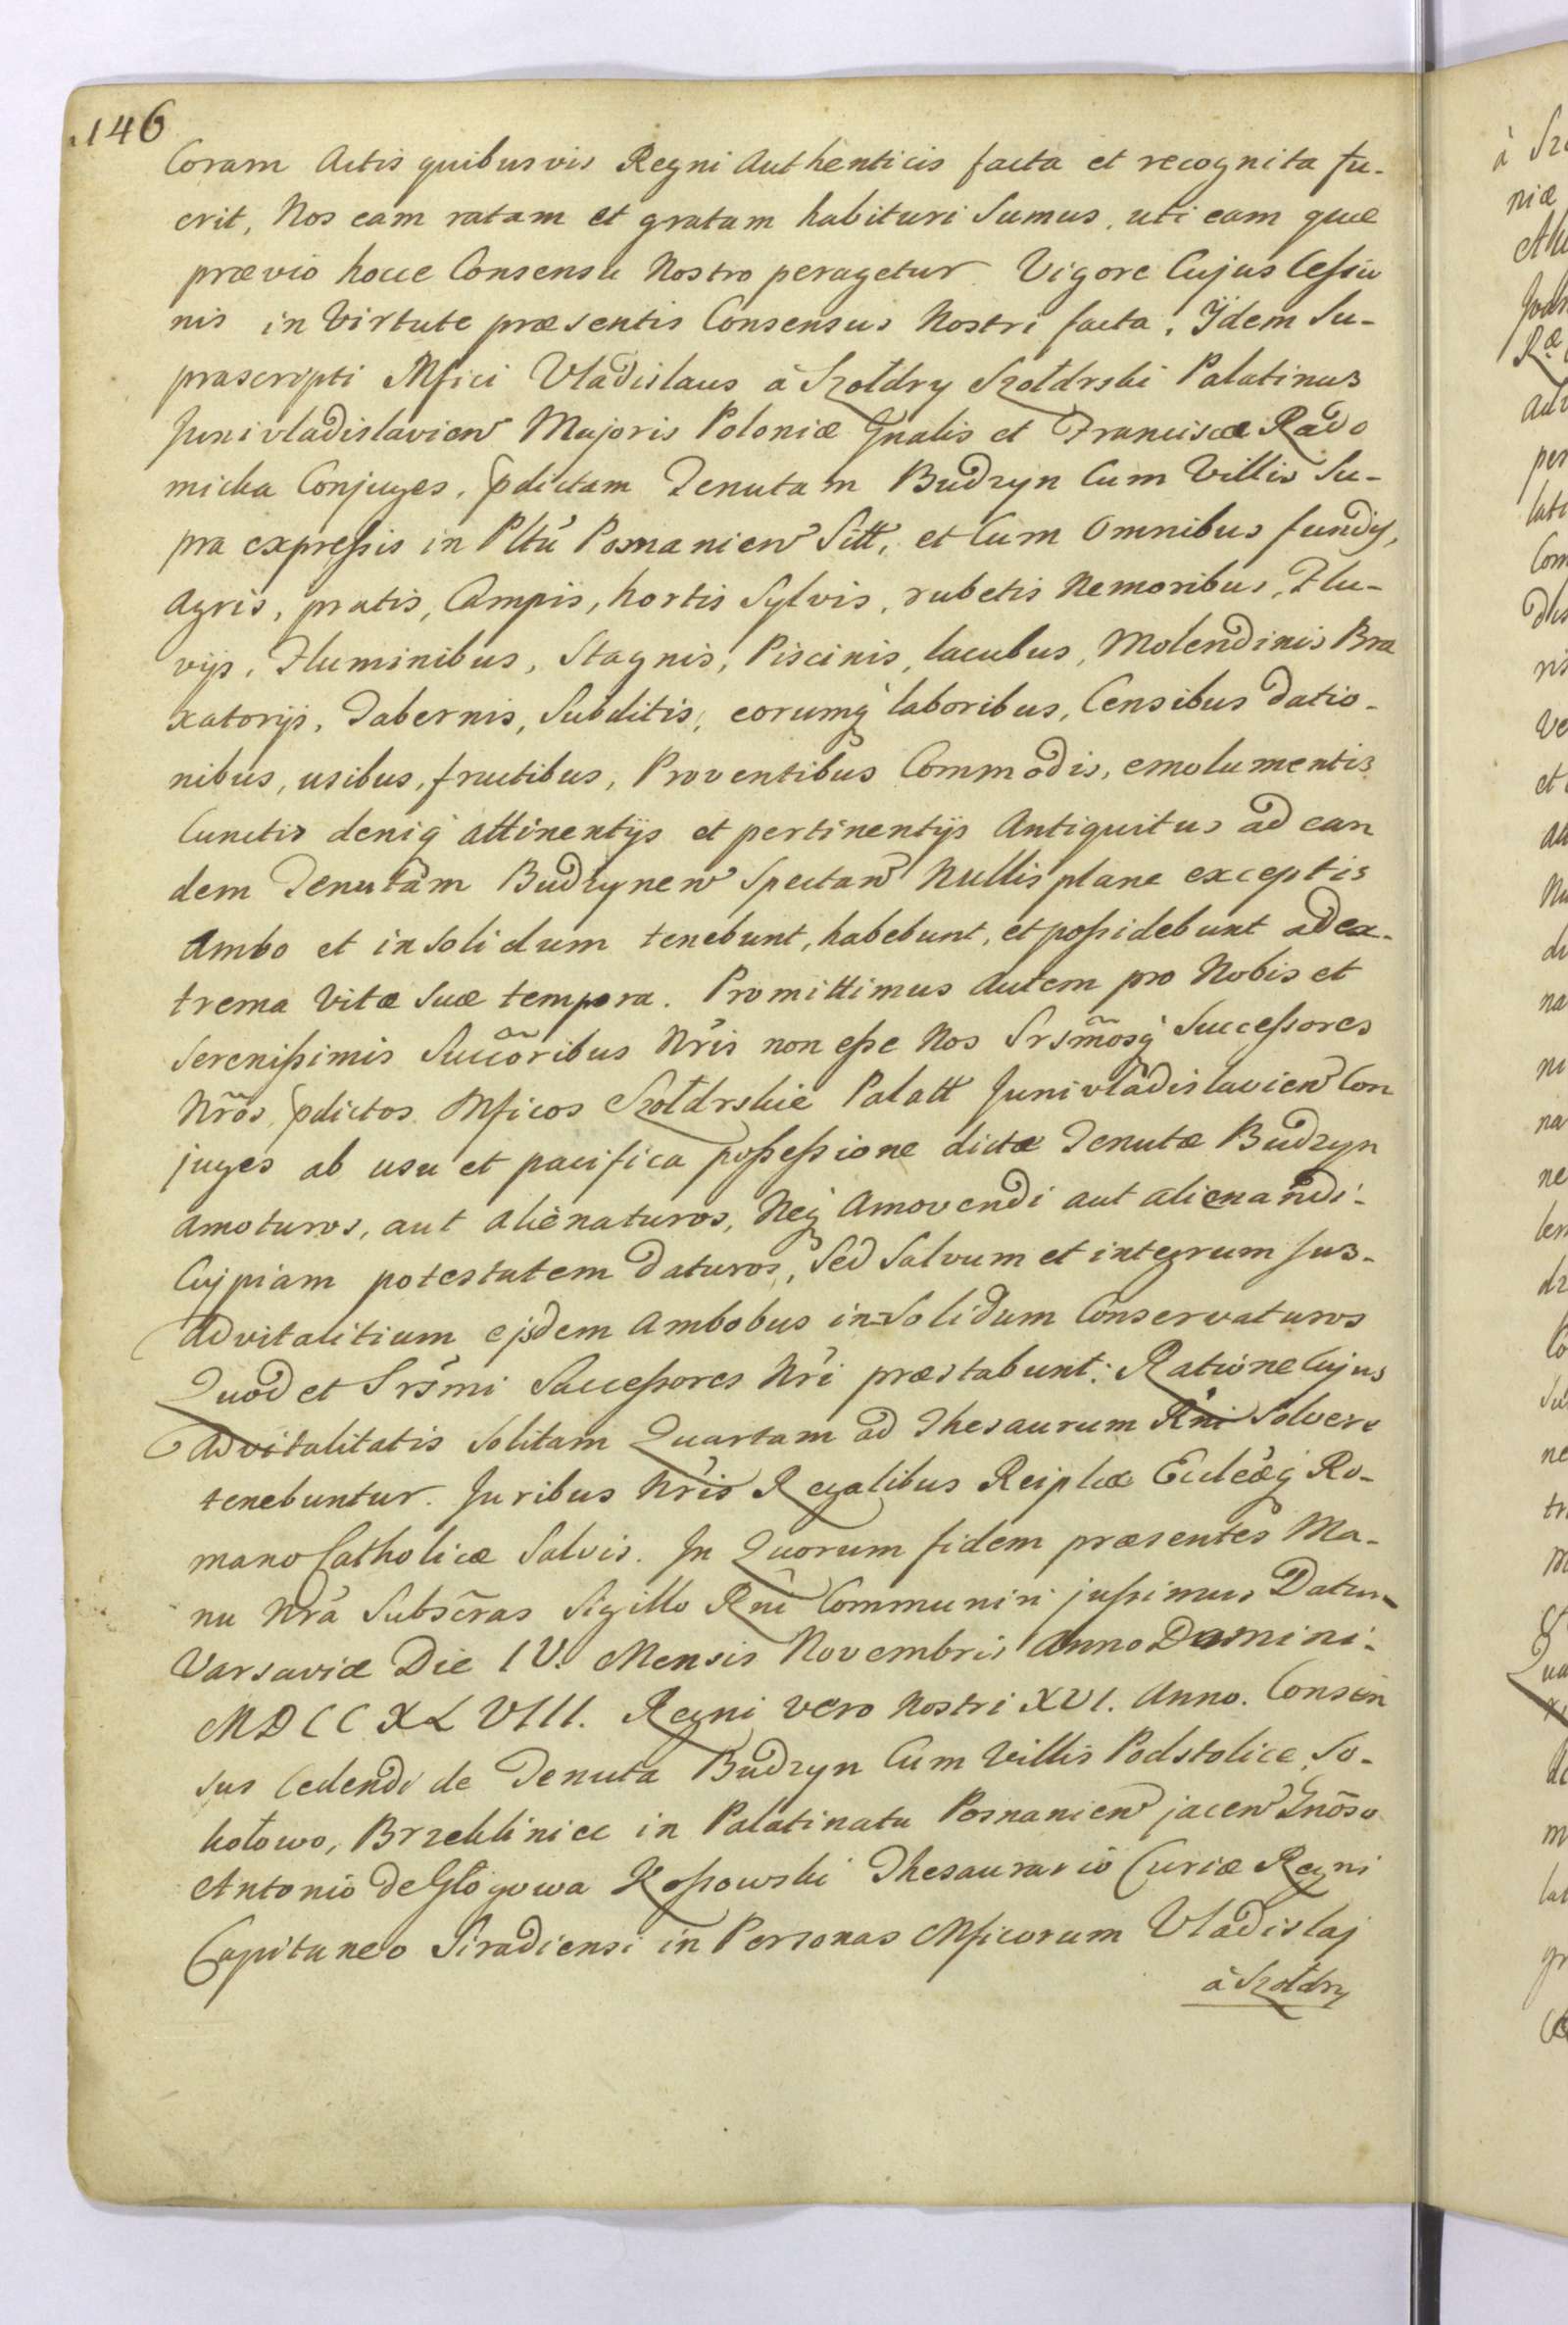 146
Coram Actis quibusvis Regni Authenticis facta et recognita fu-
erit, Nos eam ratam et gratam habituri Sumus, uti eam quæ
prævio hocce Consensu Nostro peragetur Vigore Cujus Cessio
nis in Virtute præsentis Consensus Nostri facta, Ijdem Su-
prascripti Mfici Vladislaus à Szołdry Szołdrski Palatinus
Junivladislavien Majoris Poloniæ Gnalis et Francisca Rado
micka Conjuges, pdictam Tenutam Budzyn Cum Villis Su-
pra expressis in Pltu Posnanien Sitt, et Cum Omnibus fundis,
Agris, pratis, Campis, hortis Sylvis, rubetis Nemoribus, Flu-
vijs, Fluminibus, Stagnis, Piscinis, lacubus, Molendinis Bra
xatorijs, Tabernis, Subditis, eorumq laboribus, Censibus datio-
nibus, usibus, fructibus, Proventibus Commodis, emolumentis
Cunctis deniq attinentijs et pertinentijs Antiquitus ad ean
dem Tenutam Budzynen Spectan Nullis plane exceptis
Ambo et in solidum tenebunt, habebunt, et possidebunt ad ex-
trema Vitæ Suæ tempora. Promittimus Autem pro Nobis et
Serenissimis Succõribus Nris non esse Nos Srsmõsq Successores
Nrõs, pdictos Mficos Szołdrskie Palatt Junivladislavien Con
juges ab usu et pacifica possessione dictæ Tenutæ Budzyn
amoturos, aut alienaturos, Neq Amovendi aut alienandi
Cujpiam potestatem daturos, Sed Salvum et integrum Jus-
Advitalitium ejsdem Ambobus in Solidum Conservaturos
Quod et Srsmi Successores Nri præstabunt: Ratione Cujus
Advitalitatis Solitam Quartam ad Thesaurum Rni Solvere
tenebuntur. Juribus Nris Regalibus Reiplcæ Eccleæq Ro-
mano Catholicæ Salvis. In Quorum fidem præsentes Ma-
nu Nra Subscras Sigillo Rni Communiri jussimus Datum
Varsaviæ Die IV. Mensis Novembris Anno Domini
MDCCXLVIII. Regni Vero Nostri XVI. Anno. Consen
sus Cedendi de Tenuta Budzyn Cum Villis Podstolice, So-
kołowo, Brzekiniec in Palatinatu Posnanien jacen Gnõso
Antonio de Głogowa Kossowski Thesaurario Curiæ Regni
Capitaneo Siradiensi in Personas Mficorum Vladislaj
à Szołdry